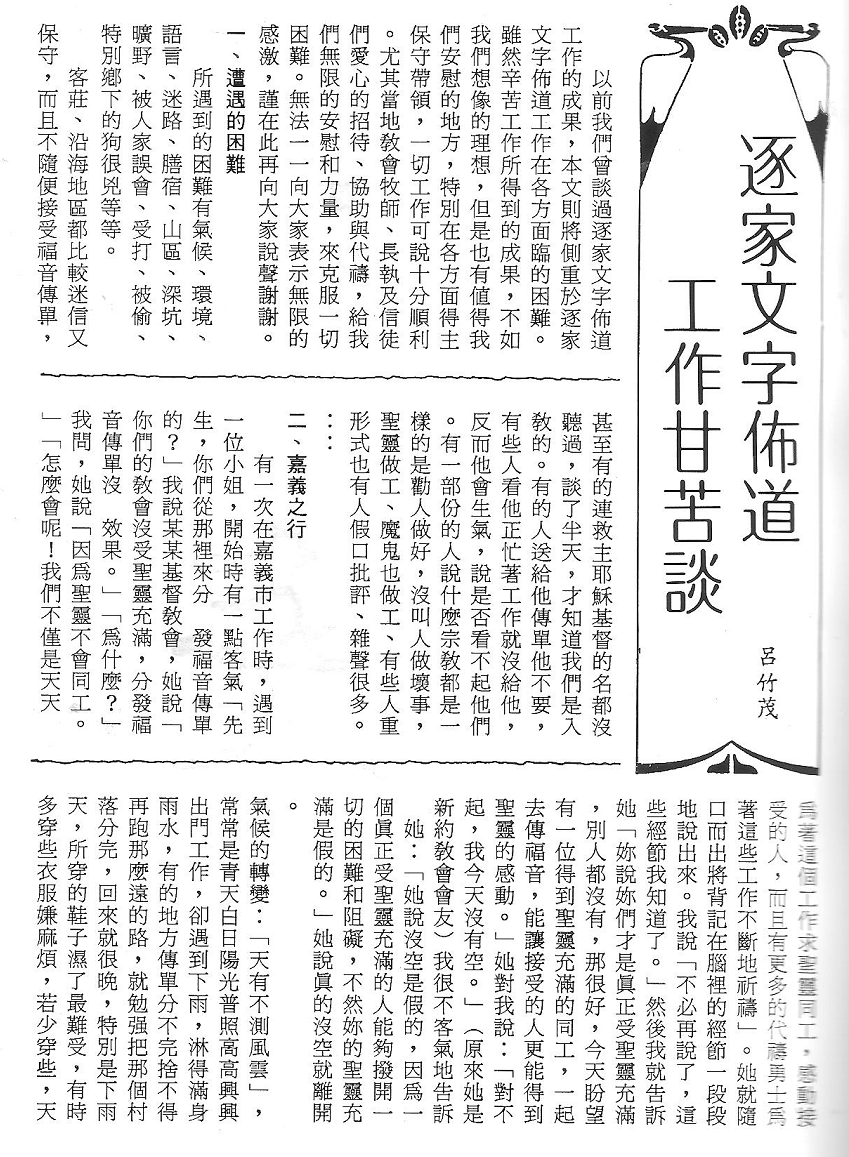 逐家文字佈道
工作甘苦談
呂竹茂
以前我們曾談過逐家文字佈道
工作的成果，本文則將側重於逐家
文字佈道工作在各方面臨的困難。
雖然辛苦工作所得到的成果，不如
我們想像的理想，但是也有値得我
們安慰的地方，特別在各方面得主
保守帶領，一切工作可說十分順利
。尤其當地敎會牧師、長執及信徒
們愛心的招待、協助與代禱，給我
們無限的安慰和力量，來克服一切
困難。無法一一向大家表示無限的
感激，謹在此再向大家說聲謝謝。
一、遭遇的困難
所遇到的困難有氣候、環境、
語言、迷路、膳宿、山區、深坑、
曠野、被人家誤會、受打、被偷、
特別鄉下的狗很兇等等。
客莊、沿海地區都比較迷信又
保守，而且不隨便接受福音傳單，
甚至有的連救主耶穌基督的名都沒
聽過，談了半天，才知道我們是入
敎的。有的人送給他傳單他不要，
有些人看他正忙著工作就沒給他，
反而他會生氣，說是否看不起他們
。有一部份的人說什麼宗敎都是一
樣的是勸人做好，沒叫人做壞事，
聖靈做工、魔鬼也做工、有些人重
形式也有人假口批評、雜聲很多。
：：
二、嘉義之行
有一次在嘉義市工作時，遇到
一位小姐，開始時有一點客氣「先
生，你們從那裡來分　發福音傳單
的？」我說某某基督敎會，她說「
你們的敎會沒受聖靈充滿，分發福
音傳單沒　效果。」「爲什麼？」
我問，她說「因爲聖靈不會同工。
」「怎麼會呢！我們不僅是天天
爲著這個工作求聖靈同工，感動接
受的人，而且有更多的代禱勇士爲
著這些工作不斷地祈禱」。她就隨
口而出將背記在腦裡的經節一段段
地說出來。我說「不必再說了，這
些經節我知道了。」然後我就告訴
她「妳說妳們才是眞正受聖靈充滿
，別人都沒有，那很好，今天盼望
有一位得到聖靈充滿的同工，一起
去傳福音，能讓接受的人更能得到
聖靈的感動。」她對我說：「對不
起，我今天沒有空。」（原來她是
新約敎會會友）我很不客氣地告訴
她：「她說沒空是假的，因爲一
個眞正受聖靈充滿的人能夠撥開一
切的困難和阻礙，不然妳的聖靈充
滿是假的。」她說眞的沒空就離開
。
氣候的轉變：「天有不測風雲」，
常常是青天白日陽光普照高高興興
出門工作，卻遇到下雨，淋得滿身
雨水，有的地方傳單分不完捨不得
再跑那麼遠的路，就勉强把那個村
落分完，回來就很晚，特別是下雨
天，所穿的鞋子濕了最難受，有時
多穿些衣服嫌麻煩，若少穿些，天